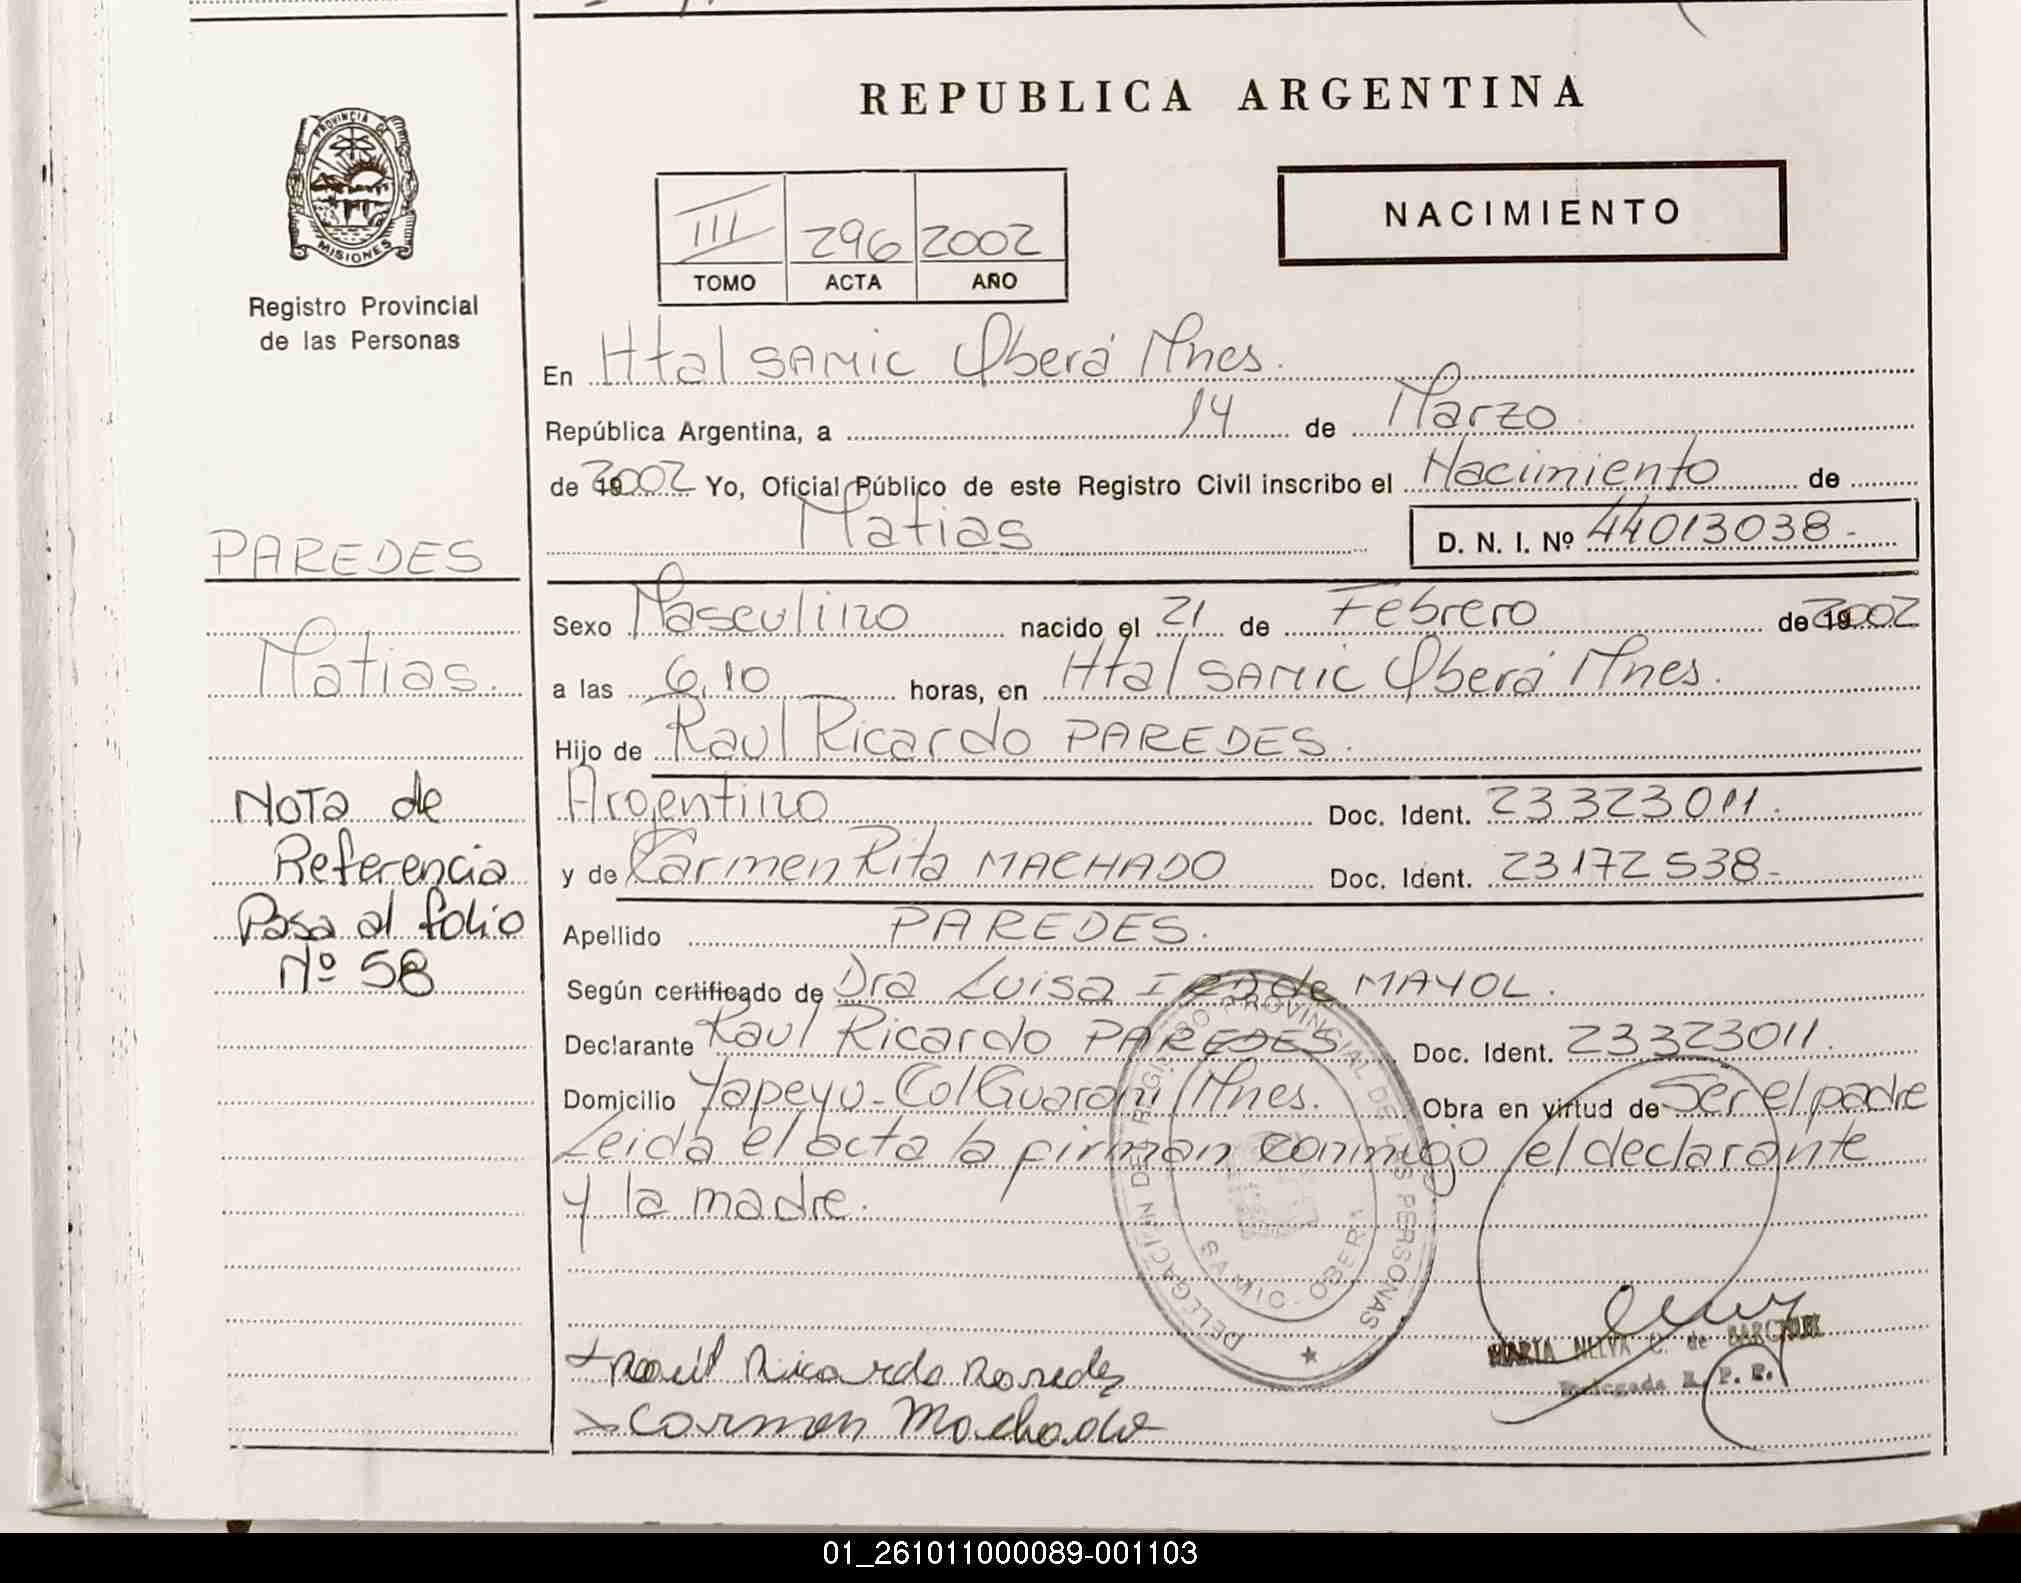 PROVINCIA DE
MISIONES
Registro Provincial
de las Personas
REPUBLICA ARGENTINA
III 296 2002
TOMO ACTA AÑO
NACIMIENTO
En Htal SAMIC Oberá Mnes.
República Argentina, a 14 de Marzo
de 192002 Yo, Oficial Público de este Registro Civil inscribo el Nacimiento de
Matias
D. N. I. Nº 44013038-
PAREDES
Matias.
Nota de
Referencia
Pasa al folio
Nº 58
Sexo Masculino nacido el 21 de Febrero de 192002
a las 6,10 horas, en Htal SAMIC Oberá Mnes.
Hijo de Raul Ricardo PAREDES.
Argentino Doc. Ident. 23323011.
y de Carmen Rita MACHADO Doc. Ident. 23172538-
Apellido PAREDES.
Según certificado de Dra Luisa de MAYOL.
Declarante Raul Ricardo PAREDES Doc. Ident. 23323011.
Domicilio Yapeyu-Col Guarani Mnes. Obra en virtud de Ser el padre
Leida el acta la firman conmigo el declarante
y la madre.
DELEGACION DEL REGISTRO PROVINCIAL DE LAS PERSONAS
SAMIC - OBERA
Raúl Ricardo Paredes
Carmen Machado
MARIA NELVA C. de
Delegada R. P. P.
01_261011000089-001103